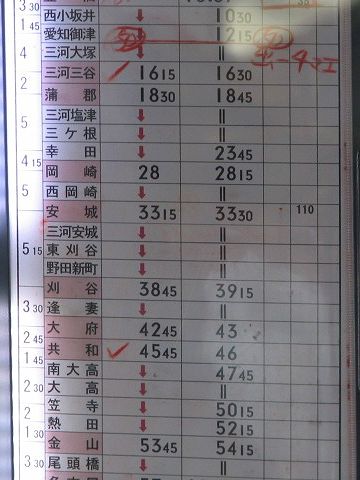 3 30
西小坂井 ↓ 10 30
愛知御津 12 15
4
三河大塚 ↓ ||
三河三谷 16 15 16 30
2
蒲郡 18 30 18 45
三河塩津 ↓ ||
5
三ケ根 ↓ ||
幸田 ↓ 23 45
4 15
岡崎 28 28 15
5
西岡崎 ↓ ||
安城 33 15 33 30 110
三河安城 ↓ ||
5 15
東刈谷 ↓ ||
野田新町 ↓ ||
刈谷 38 45 39 15
3 30
逢妻 ↓ ||
大府 42 45 43
2
共和 45 45 46
1 45
南大高 ↓ 47 45
2 30
大高 ↓ ||
笠寺 ↓ 50 15
2
熱田 ↓ 52 15
1 30
金山 53 45 54 15
3 30
尾頭橋 ↓ ||